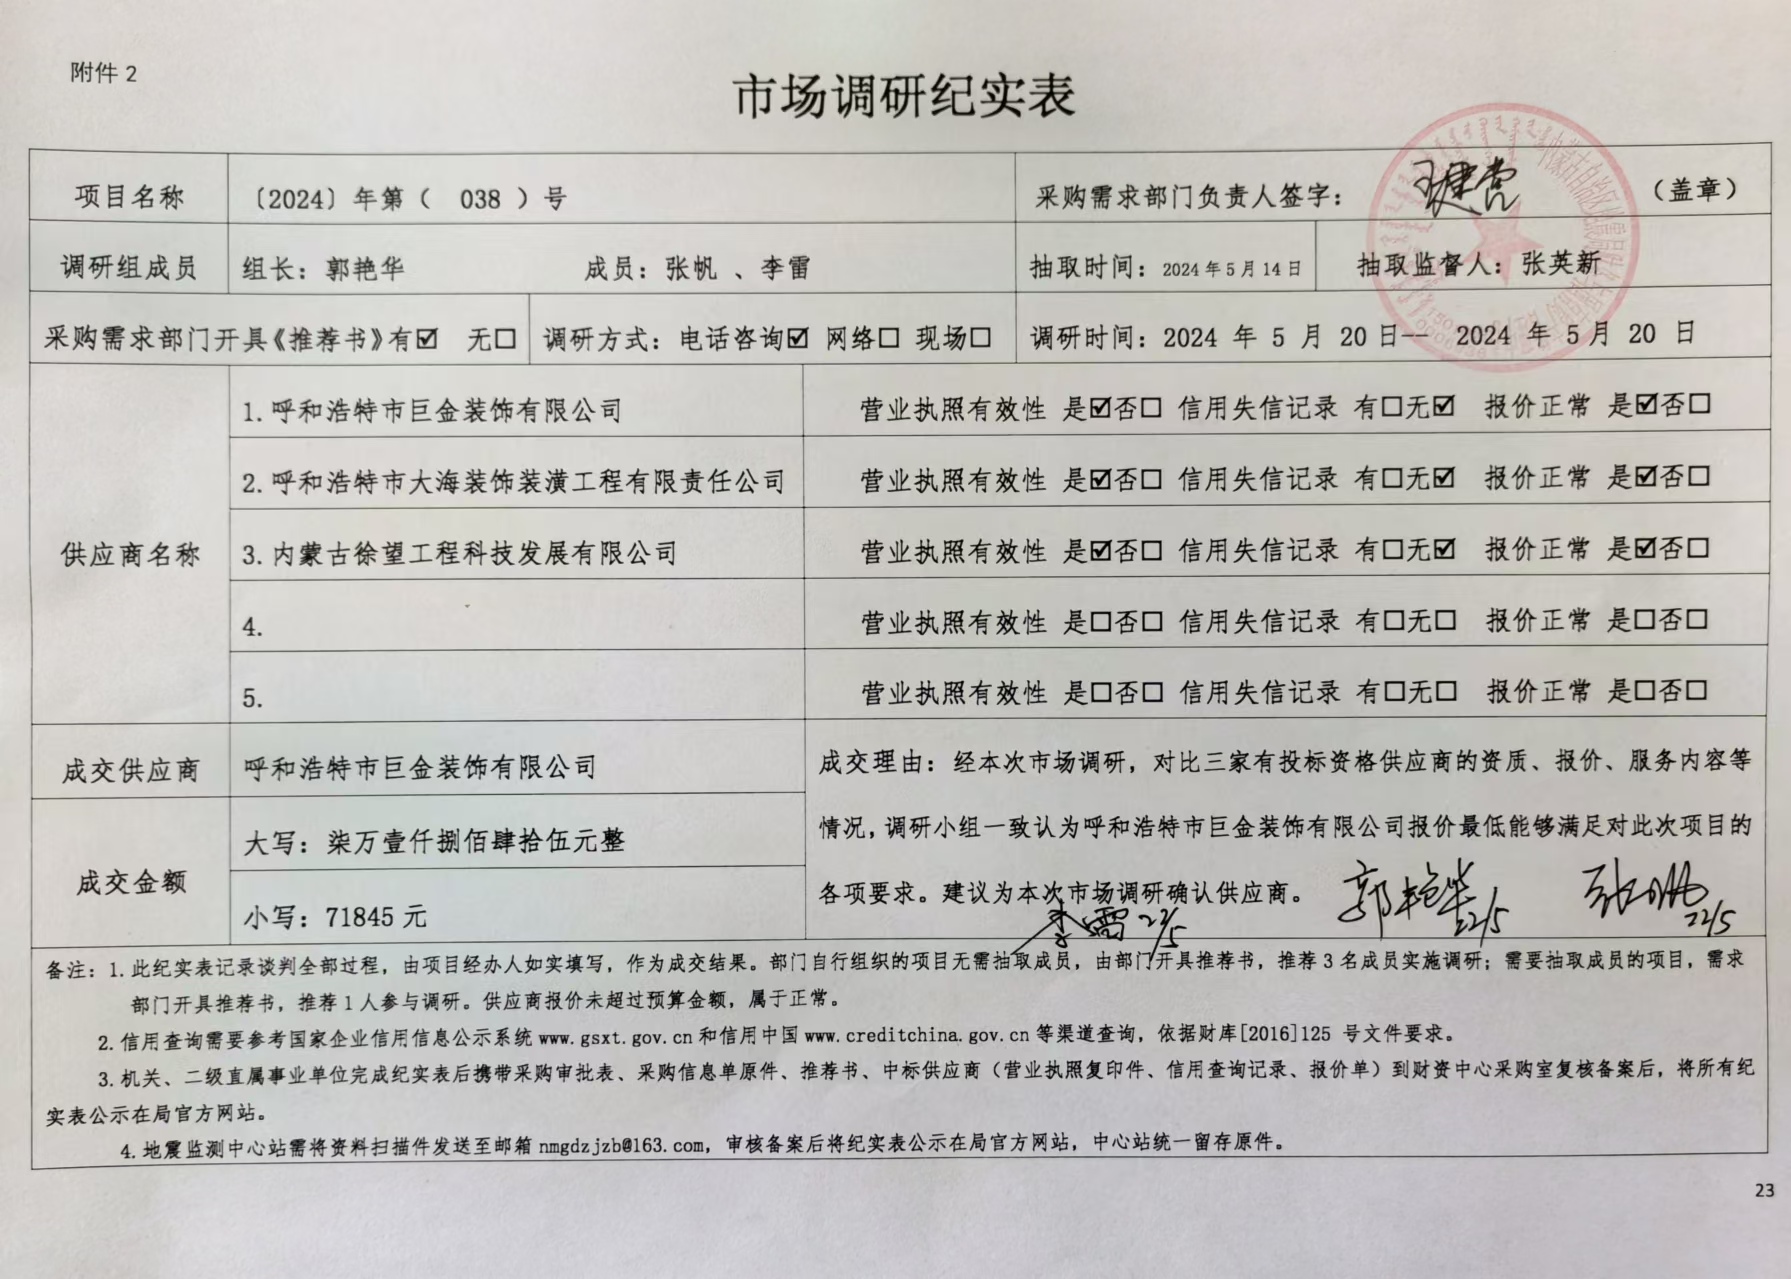 附件 2
市场调研纪实表
项目名称 〔2024〕年第（ 038 ）号 采购需求部门负责人签字： （盖章）
调研组成员 组长：郭艳华 成员：张帆 、李雷 抽取时间：2024年5月14日 抽取监督人：张英新
采购需求部门开具《推荐书》有☑ 无☐ 调研方式：电话咨询☑ 网络☐ 现场☐ 调研时间：2024 年 5 月 20 日— 2024 年 5 月 20 日
供应商名称
1.呼和浩特市巨金装饰有限公司 营业执照有效性 是☑否☐ 信用失信记录 有☐无☑ 报价正常 是☑否☐
2.呼和浩特市大海装饰装潢工程有限责任公司 营业执照有效性 是☑否☐ 信用失信记录 有☐无☑ 报价正常 是☑否☐
3.内蒙古徐望工程科技发展有限公司 营业执照有效性 是☑否☐ 信用失信记录 有☐无☑ 报价正常 是☑否☐
4. 营业执照有效性 是☐否☐ 信用失信记录 有☐无☐ 报价正常 是☐否☐
5. 营业执照有效性 是☐否☐ 信用失信记录 有☐无☐ 报价正常 是☐否☐
成交供应商 呼和浩特市巨金装饰有限公司
成交金额
大写：柒万壹仟捌佰肆拾伍元整
小写：71845 元
成交理由：经本次市场调研，对比三家有投标资格供应商的资质、报价、服务内容等
情况，调研小组一致认为呼和浩特市巨金装饰有限公司报价最低能够满足对此次项目的
各项要求。建议为本次市场调研确认供应商。
李雷 22/5 郭艳华 22/5 张帆 22/5
备注：1.此纪实表记录谈判全部过程，由项目经办人如实填写，作为成交结果。部门自行组织的项目无需抽取成员，由部门开具推荐书，推荐3名成员实施调研；需要抽取成员的项目，需求
部门开具推荐书，推荐1人参与调研。供应商报价未超过预算金额，属于正常。
2.信用查询需要参考国家企业信用信息公示系统www.gsxt.gov.cn和信用中国www.creditchina.gov.cn等渠道查询，依据财库[2016]125 号文件要求。
3.机关、二级直属事业单位完成纪实表后携带采购审批表、采购信息单原件、推荐书、中标供应商（营业执照复印件、信用查询记录、报价单）到财资中心采购室复核备案后，将所有纪
实表公示在局官方网站。
4.地震监测中心站需将资料扫描件发送至邮箱nmgdzjzb@163.com，审核备案后将纪实表公示在局官方网站，中心站统一留存原件。
23